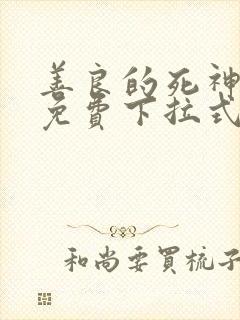 善良的死神
免費下拉式
和尚要買梳子